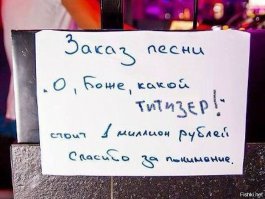 Заказ песни
"О, Боже, какой
ТИТИЗЕР!"
стоит 1 миллион рублей
Спасибо за понимание.
Fishki.net